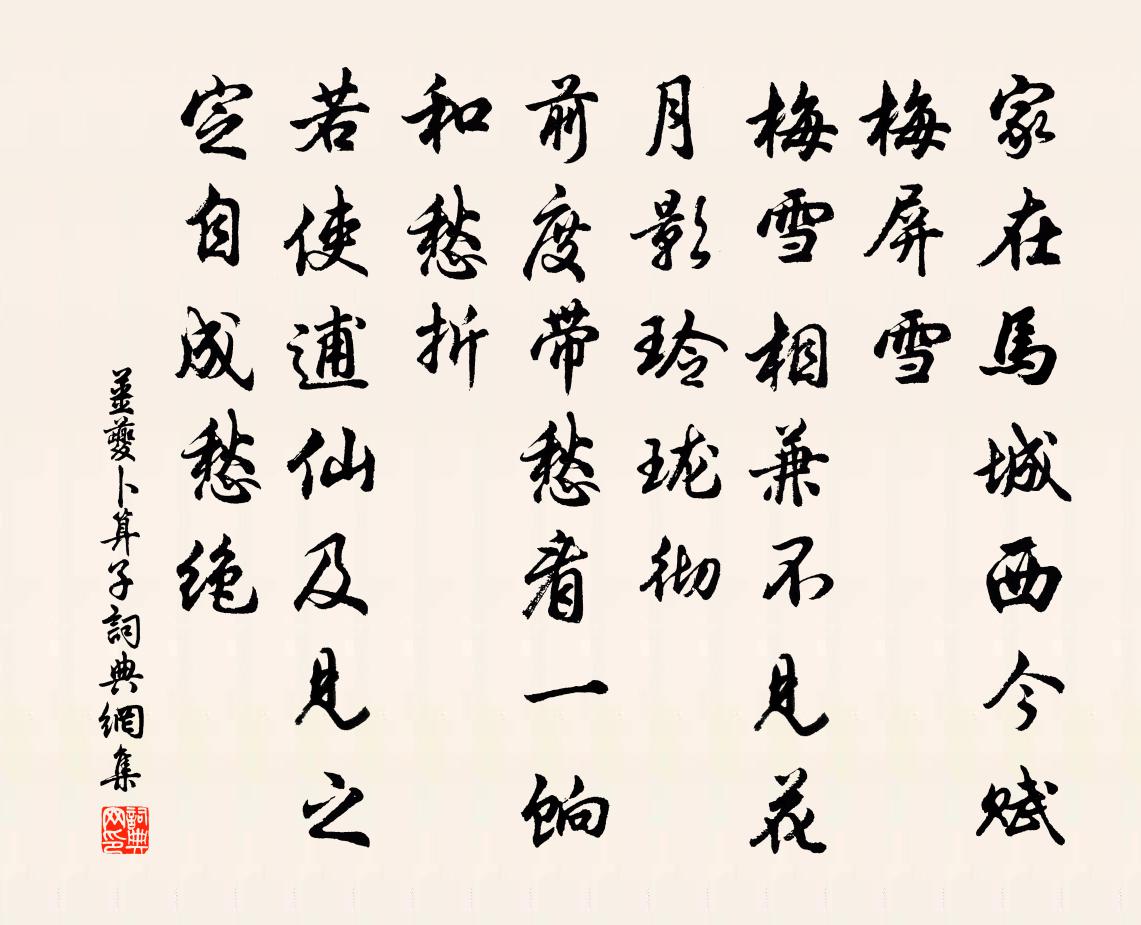 家在馬城西今賦
梅屏雪
梅雪相兼不見花
月影玲瓏彻
前度带愁看一饷
和愁折
若使逋仙及見之
定自成愁绝
姜夔卜算子詞典網集
詞典网印